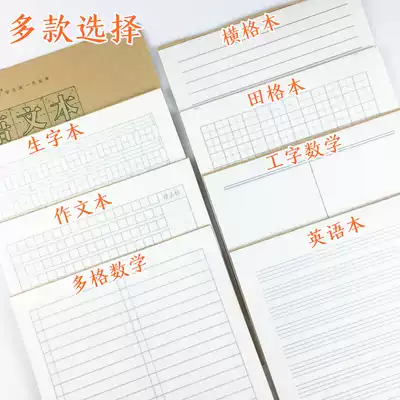 多款选择
语文本
生字本
作文本
多格数学
横格本
田格本
工字数学
英语本